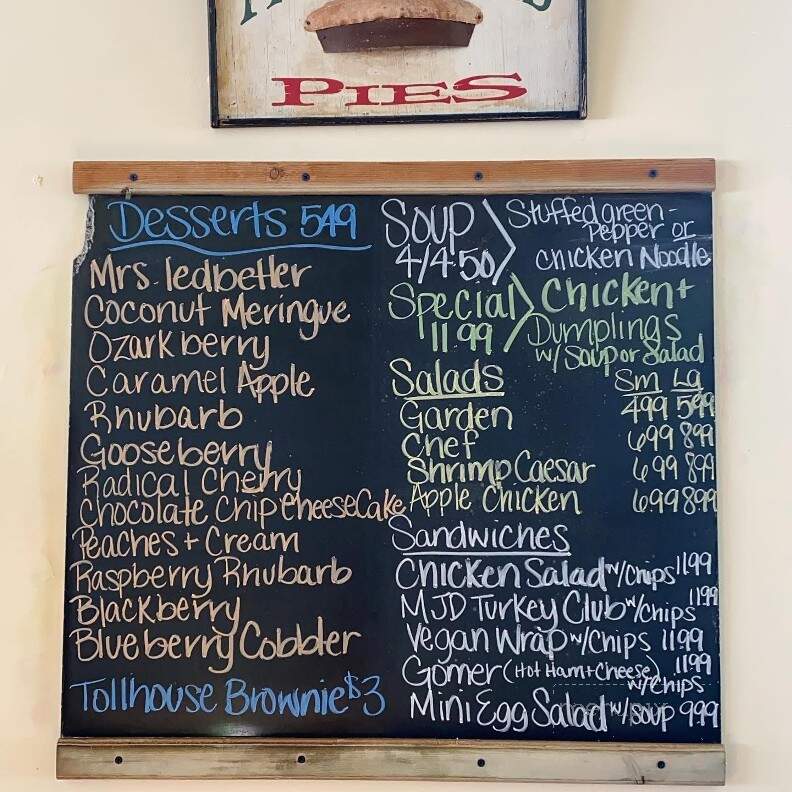 PIES
Desserts 549
Mrs. ledbetter
Coconut Meringue
Ozarkberry
Caramel Apple
Rhubarb
Gooseberry
Radical Cherry
Chocolate Chip CheeseCake
Peaches + Cream
Raspberry Rhubarb
Blackberry
Blueberry Cobbler
Tollhouse Brownie $3
Soup
4/4.50
Stuffed green-
Pepper or
Chicken Noodle
Special
11 99
Chicken +
Dumplings
w/ Soup or Salad
Salads Sm Lg
Garden 499 599
Chef 699 899
Shrimp Caesar 699 899
Apple Chicken 699 899
Sandwiches
Chicken Salad w/Chips 1199
MJD Turkey Club w/Chips 1199
Vegan Wrap w/Chips 1199
Gomer (Hot Ham + Cheese) 1199
w/Chips
Mini Egg Salad w/soup 999